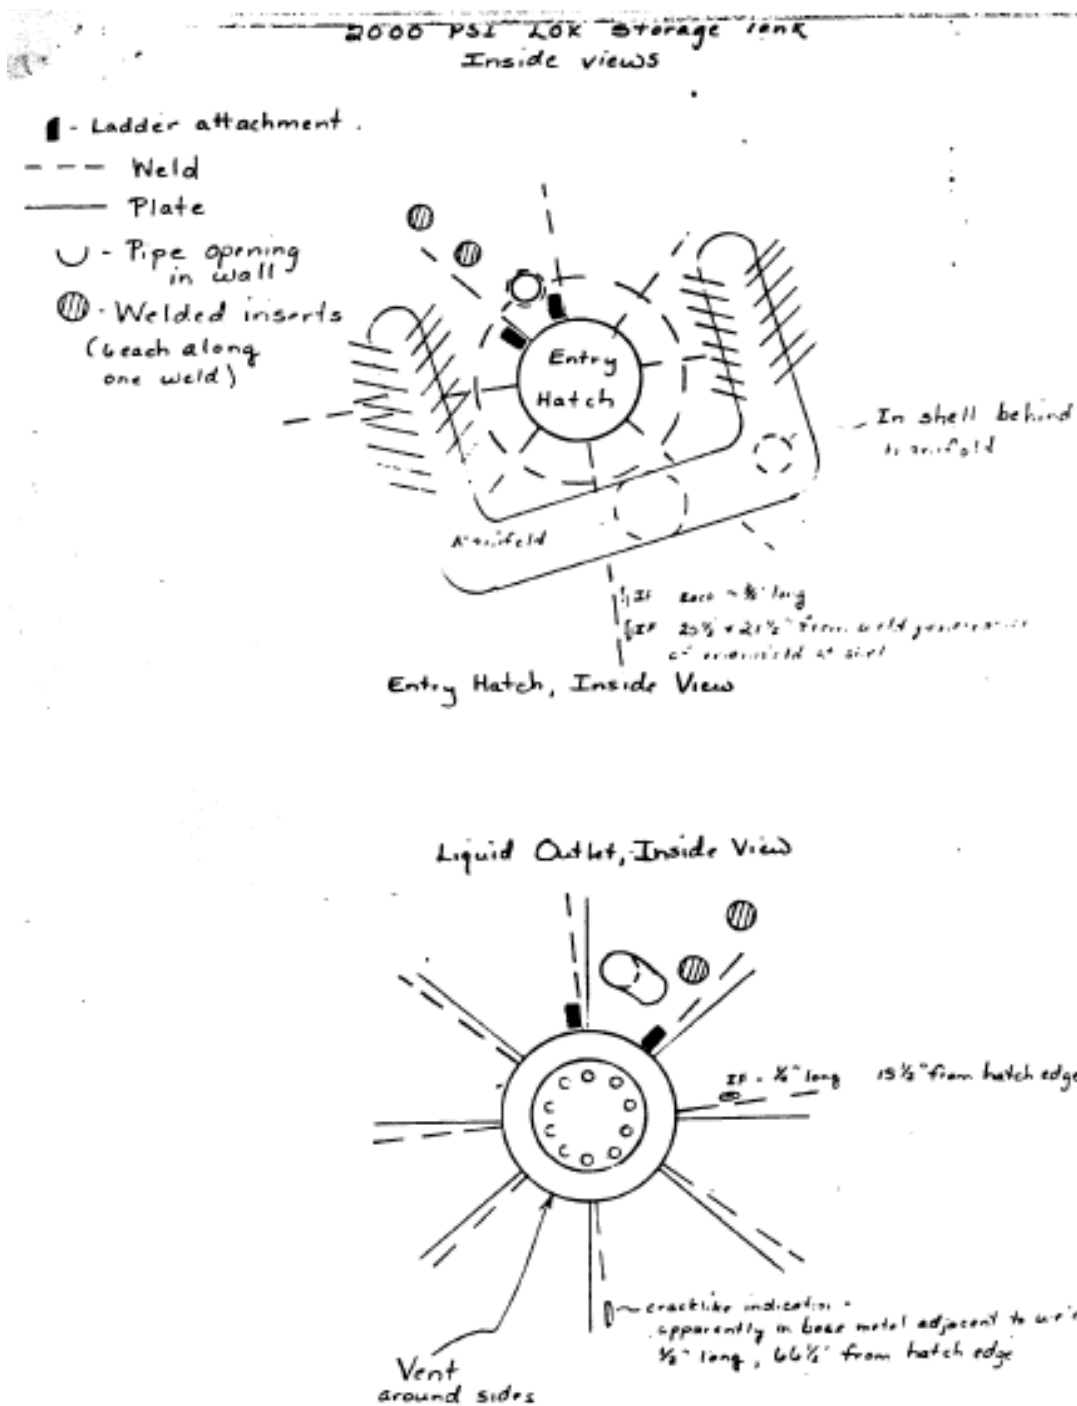 2000 PSI LOX Storage Tank
Inside views
- Ladder attachment.
Weld
Plate
- Pipe opening
in wall
- Welded inserts
(6 each along
one weld)
Entry
Hatch
In shell behind
manifold
Manifold
IF each ~ long
IF from weld
of manifold
Entry Hatch, Inside View
Liquid Outlet, Inside View
IF - long 15 1/2" from hatch edge
cracklike indication -
apparently in base metal adjacent to
1/2" long, 66 1/2" from hatch edge
Vent
around sides